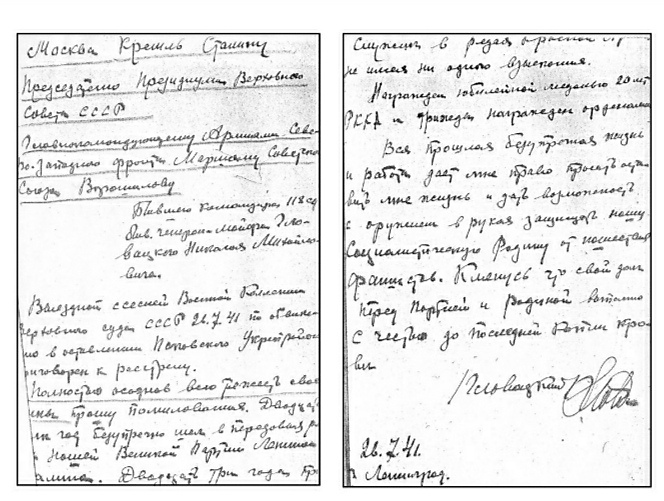 Москва Кремль Сталину
Председателю Президиума Верховного
Совета СССР
Главнокомандующему Армиями Севе
ро-Западного фронта Маршалу Советского
Союза Ворошилову
Бывшего командира 118 сд
быв. генерал-майора Гло
вацкого Николая Михайло
вича.
Выездной сессией Военной Коллегии
Верховного суда СССР 26.7.41 по обвине
ию в оставлении Псковского Укрепрайона
риговорен к расстрелу.
Полностью осознав всю тяжесть своей
ины прошу помилования. Двадцать
год безупречно шел в передовая
Нашей Великой Партии Ленина
алина. Двадцать три года
Служил в рядах Красной
не имея ни одного взыскания.
Награжден юбилейной медалью 20 лет
РККА и трижды награжден орденами
Вся прошлая безупречная жизнь
и работа дает мне право просить оста
вить мне жизнь и дать возможность
с оружием в руках защищать нашу
Социалистическую Родину от нашествия
фашистов. Клянусь что свой долг
перед Партией и Родиной выполню
с честью до последней капли кро
ви
Гловацкий
26.7.41.
Ленинград.